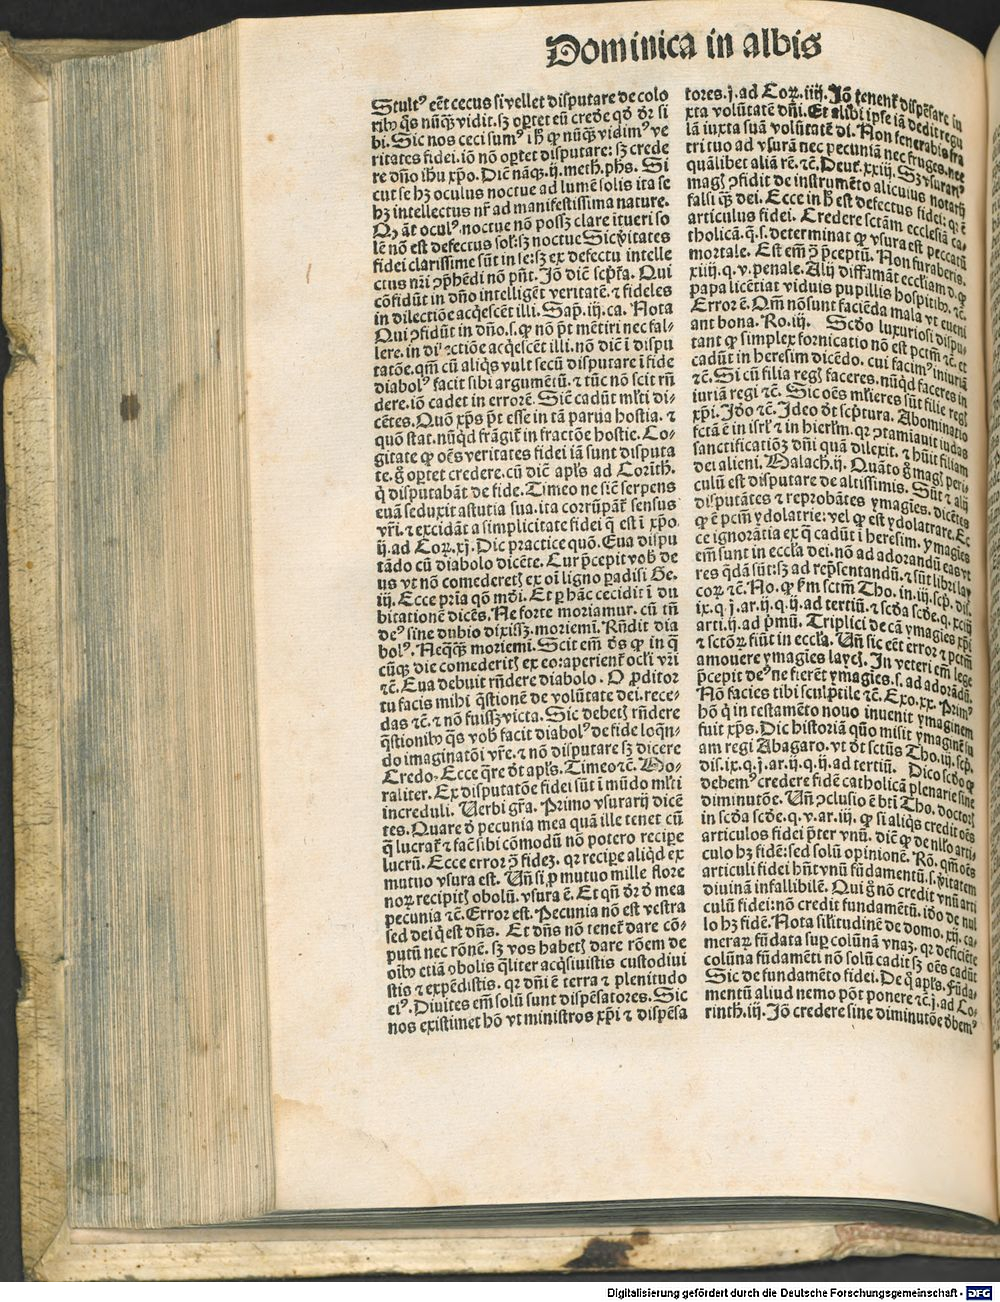 Dominica in albis
Stultꝰ eēt cecus si vellet disputare de colo
ribꝰ q̄s nūq̄ꝫ vidit. sꝫ oꝑtet eū crede qđ dr̄ si
bi. Sic nos ceci sumꝰ i h̄ ꝙ nūq̄ꝫ vidimꝰ ve
ritates fidei. iō nō oꝑtet disputare: sꝫ crede
re dn̄o ih̄u xp̄o. Dic̄ nāqꝫ. ij. meth. ph̄s. Si
cut se hꝫ oculus noctue ad lumē solis ita se
hꝫ intellectus nr̄ ad manifestissima nature.
Qꝫ āt oculꝰ noctue nō possꝫ clare itueri so
lē nō est defectus sol: sꝫ noctue Sic v̄itates
fidei clarissime sūt in se: sꝫ ex defectu intelle
ctus nr̄i ꝯp̄hēdi nō pn̄t. Jō dic̄ scp̄tra. Qui
cōfidūt in dn̄o intelligēt veritatē. ⁊ fideles
in dilectiōe acq̄escēt illi. Sap̄. iij. ca. Nota
Qui ꝯfidūt in dn̄o. s. ꝙ nō p̄t mētiri nec fal-
lere. in di ectiōe acq̄escēt illi. nō dic̄ i dispu
tatōe. qm̄ cū aliq̄s vult secū disputare i fide
diabolꝰ facit sibi argumētū. ⁊ tūc nō scit rn̄
dere. iō cadet in errorē. Sic̄ cadūt ml̄ti di-
cētes. Quō xp̄s p̄t esse in tā parua hostia. ⁊
quō stat. nūqd frāgit̄ in fractōe hostie. Co-
gitate ꝙ oēs veritates fidei iā sunt disputa
te. g̊ oꝑtet credere. cū dic̄ apl̄s ad Corīth.
q̇ disputabāt de fide. Timeo ne sic̄ serpens
euā seduxit astutia sua. ita corrūpāt̄ sensus
vr̄i. ⁊ excidāt a simplicitate fidei q̄ est i xp̄o
ij. ad Coꝝ. xj. Dic practice quō. Eua dispu
tādo cū diabolo dicēte. Cur p̄cepit vob̄ de
us vt nō comederetꝭ ex oi ligno ꝑadisi Ge.
iij. Ecce pria qō mōi. Et ꝑ hāc cecidit i du
bitationē dicēs. Ne forte moriamur. cū tn̄
deꝰ sine dubio dixissꝫ. moriemi. Rn̄dit dia
bolꝰ. Neq̄q̄ꝫ moriemi. Scit em̄ ds̄ ꝙ in q̄
cūqꝫ die comederitꝭ ex eo aperient̄ ocl̄i vr̄i
⁊c̄. Eua debuit rn̄dere diabolo. O ꝓditor
tu facis mihi q̄stionē de volūtate dei. rece-
das ⁊c̄. ⁊ nō fuissꝫ victa. Sic debetꝭ rn̄dere
q̄stionibꝰ q̄s vob̄ facit diabolꝰ de fide loqn̄-
do imaginatōi vr̄e. ⁊ nō disputare sꝫ dicere
Credo. Ecce q̄re dt̄ apl̄s. Timeo ⁊c̄. Mo-
raliter. Ex disputatōe fidei sūt i mūdo ml̄ti
increduli. Verbi gr̄a. Primo vsurarij dicē
tes. Quare d̄ pecunia mea quā ille tenet cū
q̄ lucrat̄ ⁊ fac̄ sibi cōmodū nō potero recipe
lucrū. Ecce error ꝯ̄ fideꝫ. qꝛ recipe aliq̄d ex
mutuo vsura est. Vn̄ si ꝓ mutuo mille flore
noꝝ recipitꝭ obolū. vsura ē. Et qn̄ dr̄ d̄ mea
pecunia ⁊c̄. Error est. Pecunia nō est vestra
sed dei q̇ est dn̄s. Et dn̄s nō tenet̄ dare cō-
putū nec rōnē. sꝫ vos habetꝭ dare rōem de
oibꝰ etiā obolis qͣliter acq̄siuistis custodiui
stis ⁊ expēdistis. qꝛ dn̄i ē terra ⁊ plenitudo
eiꝰ. Diuites em̄ solū sunt dispēsatores. Sic
nos existimet hō vt ministros xp̄i ⁊ dispēsa
tores. j. ad Coꝝ. iiij. Jō tenent̄ dispēsare iu
xta volūtatē dn̄i. Et alibi ipse iā dedit regu
lā iuxta suā volūtatē di. Non fenerabis fra
tri tuo ad vsurā nec pecuniā nec fruges. nec
quālibet aliā rē. ⁊c̄. Deut̄. xxiij. Sꝫ vsurariꝰ
magꝭ ꝯfidit de instrumēto alicuius notarij
falsi q̄ꝫ dei. Ecce in h̄ est defectus fidei: qꝛ ē
articulus fidei. Credere sctām ecclesiā ca-
tholicā. q̄. s. determinat ꝙ vsura est peccatū
mortale. Est em̄ ꝯ̄ p̄ceptū. Non furaberis.
xiiij. q. v. penale. Alij diffamāt eccl̄iam d. ꝙ
papa licētiat viduis pupillis hospitibꝰ. ⁊c̄.
Error ē. Qm̄ nō sunt faciēda mala vt eueni
ant bona. Ro. iij. Scd̄o luxuriosi dispu-
tant ꝙ simplex fornicatio nō est pctm̄ ⁊c̄. et
cadūt in heresim dicēdo. cui facimꝰ iniuriā
⁊c̄. Si cū filia regꝭ faceres. nūqd faceres in
iuriā regi ⁊c̄. Sic oēs ml̄ieres sūt filie regꝭ
xp̄i. Jdo ⁊c̄. Jdeo dt̄ scp̄tura. Abominatio
fctā ē in isrl̄ ⁊ in hierl̄m. qꝛ ꝯtamiauit iudas
sanctificatiōꝫ dn̄i quā dilexit. ⁊ hūit filiam
dei alieni. Malach. ij. Quāto g̊ magꝭ peri-
culū est disputare de altissimis. Sūt ⁊ alij
disputātes ⁊ reprobātes ymagīes. dicētes
ꝙ ē pcm̄ ydolatrie: vel ꝙ est ydolatrare. Ec
ce ignorātia ex q̄ cadūt i heresim. ymagīes
em̄ sunt in eccl̄a dei. nō ad adorandū eas vt
res q̄dā sūt: sꝫ ad rep̄sentandū. ⁊ sūt libri lay
coꝝ ⁊c̄. No. ꝙ fm̄ sctm̄ Tho. in. iij. scp̄. dis.
ix. q. j. ar. ij. q. ij. ad tertiū. ⁊ scd̄a scd̄e. q. xciiij
arti. ij. ad p̄mū. Triplici de cā ymagīes xp̄i
⁊ sctōꝝ fiūt in eccl̄a. Vn̄ sic eēt error ⁊ pctm̄
amouere ymagīes laycꝭ. Jn veteri em̄ lege
p̄cepit deꝰ ne fierēt ymagīes. s. ad adorādū.
Nō facies tibi sculptile ⁊c̄. Exo. xx. Primꝰ
hō q̇ in testamēto nouo inuenit ymaginem
fuit xp̄s. Dic historiā quō misit ymaginē su
am regi Abagaro. vt dt̄ sctūs Tho. iij. scp̄.
dis. ix. q. j. ar. ij. q. ij. ad tertiū. Dico scd̄o ꝙ
debemꝰ credere fidē catholicā plenarie sine
diminutōe. Vn̄ ꝯclusio ē bt̄i Tho. doctorꝭ
in scd̄a scd̄e. q. v. ar. iij. ꝙ si aliq̄s credit oēs
articulos fidei p̄ter vnū. dic̄ ꝙ de nl̄lo arti-
culo hꝫ fidē: sed solū opinionē. Rō. qm̄ oēs
articuli fidei hn̄t vnū fūdamētū. s. v̄itatem
diuinā infallibilē. Qui g̊ nō credit vnū arti
culū fidei: nō credit fundamētū. ido de nul
lo hꝫ fidē. Nota sil̄itudinē de domo. xij. ca-
meraꝝ fūdata sup̱ colūnā vnaꝫ. qꝛ deficiēte
colūna fūdamēti nō solū cadit sꝫ oēs cadūt
Sic de fundamēto fidei. De q̊ apl̄s. Fūda-
mentū aliud nemo pōt ponere ⁊c̄. j. ad Co-
rinth. iij. Jō credere sine diminutōe d̄bemꝰ
Digitalisierung gefördert durch die Deutsche Forschungsgemeinschaft - DFG